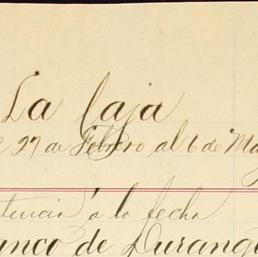 La Caja
27 de Febrero al 6 de Ma
á la fecha
anco de Durang